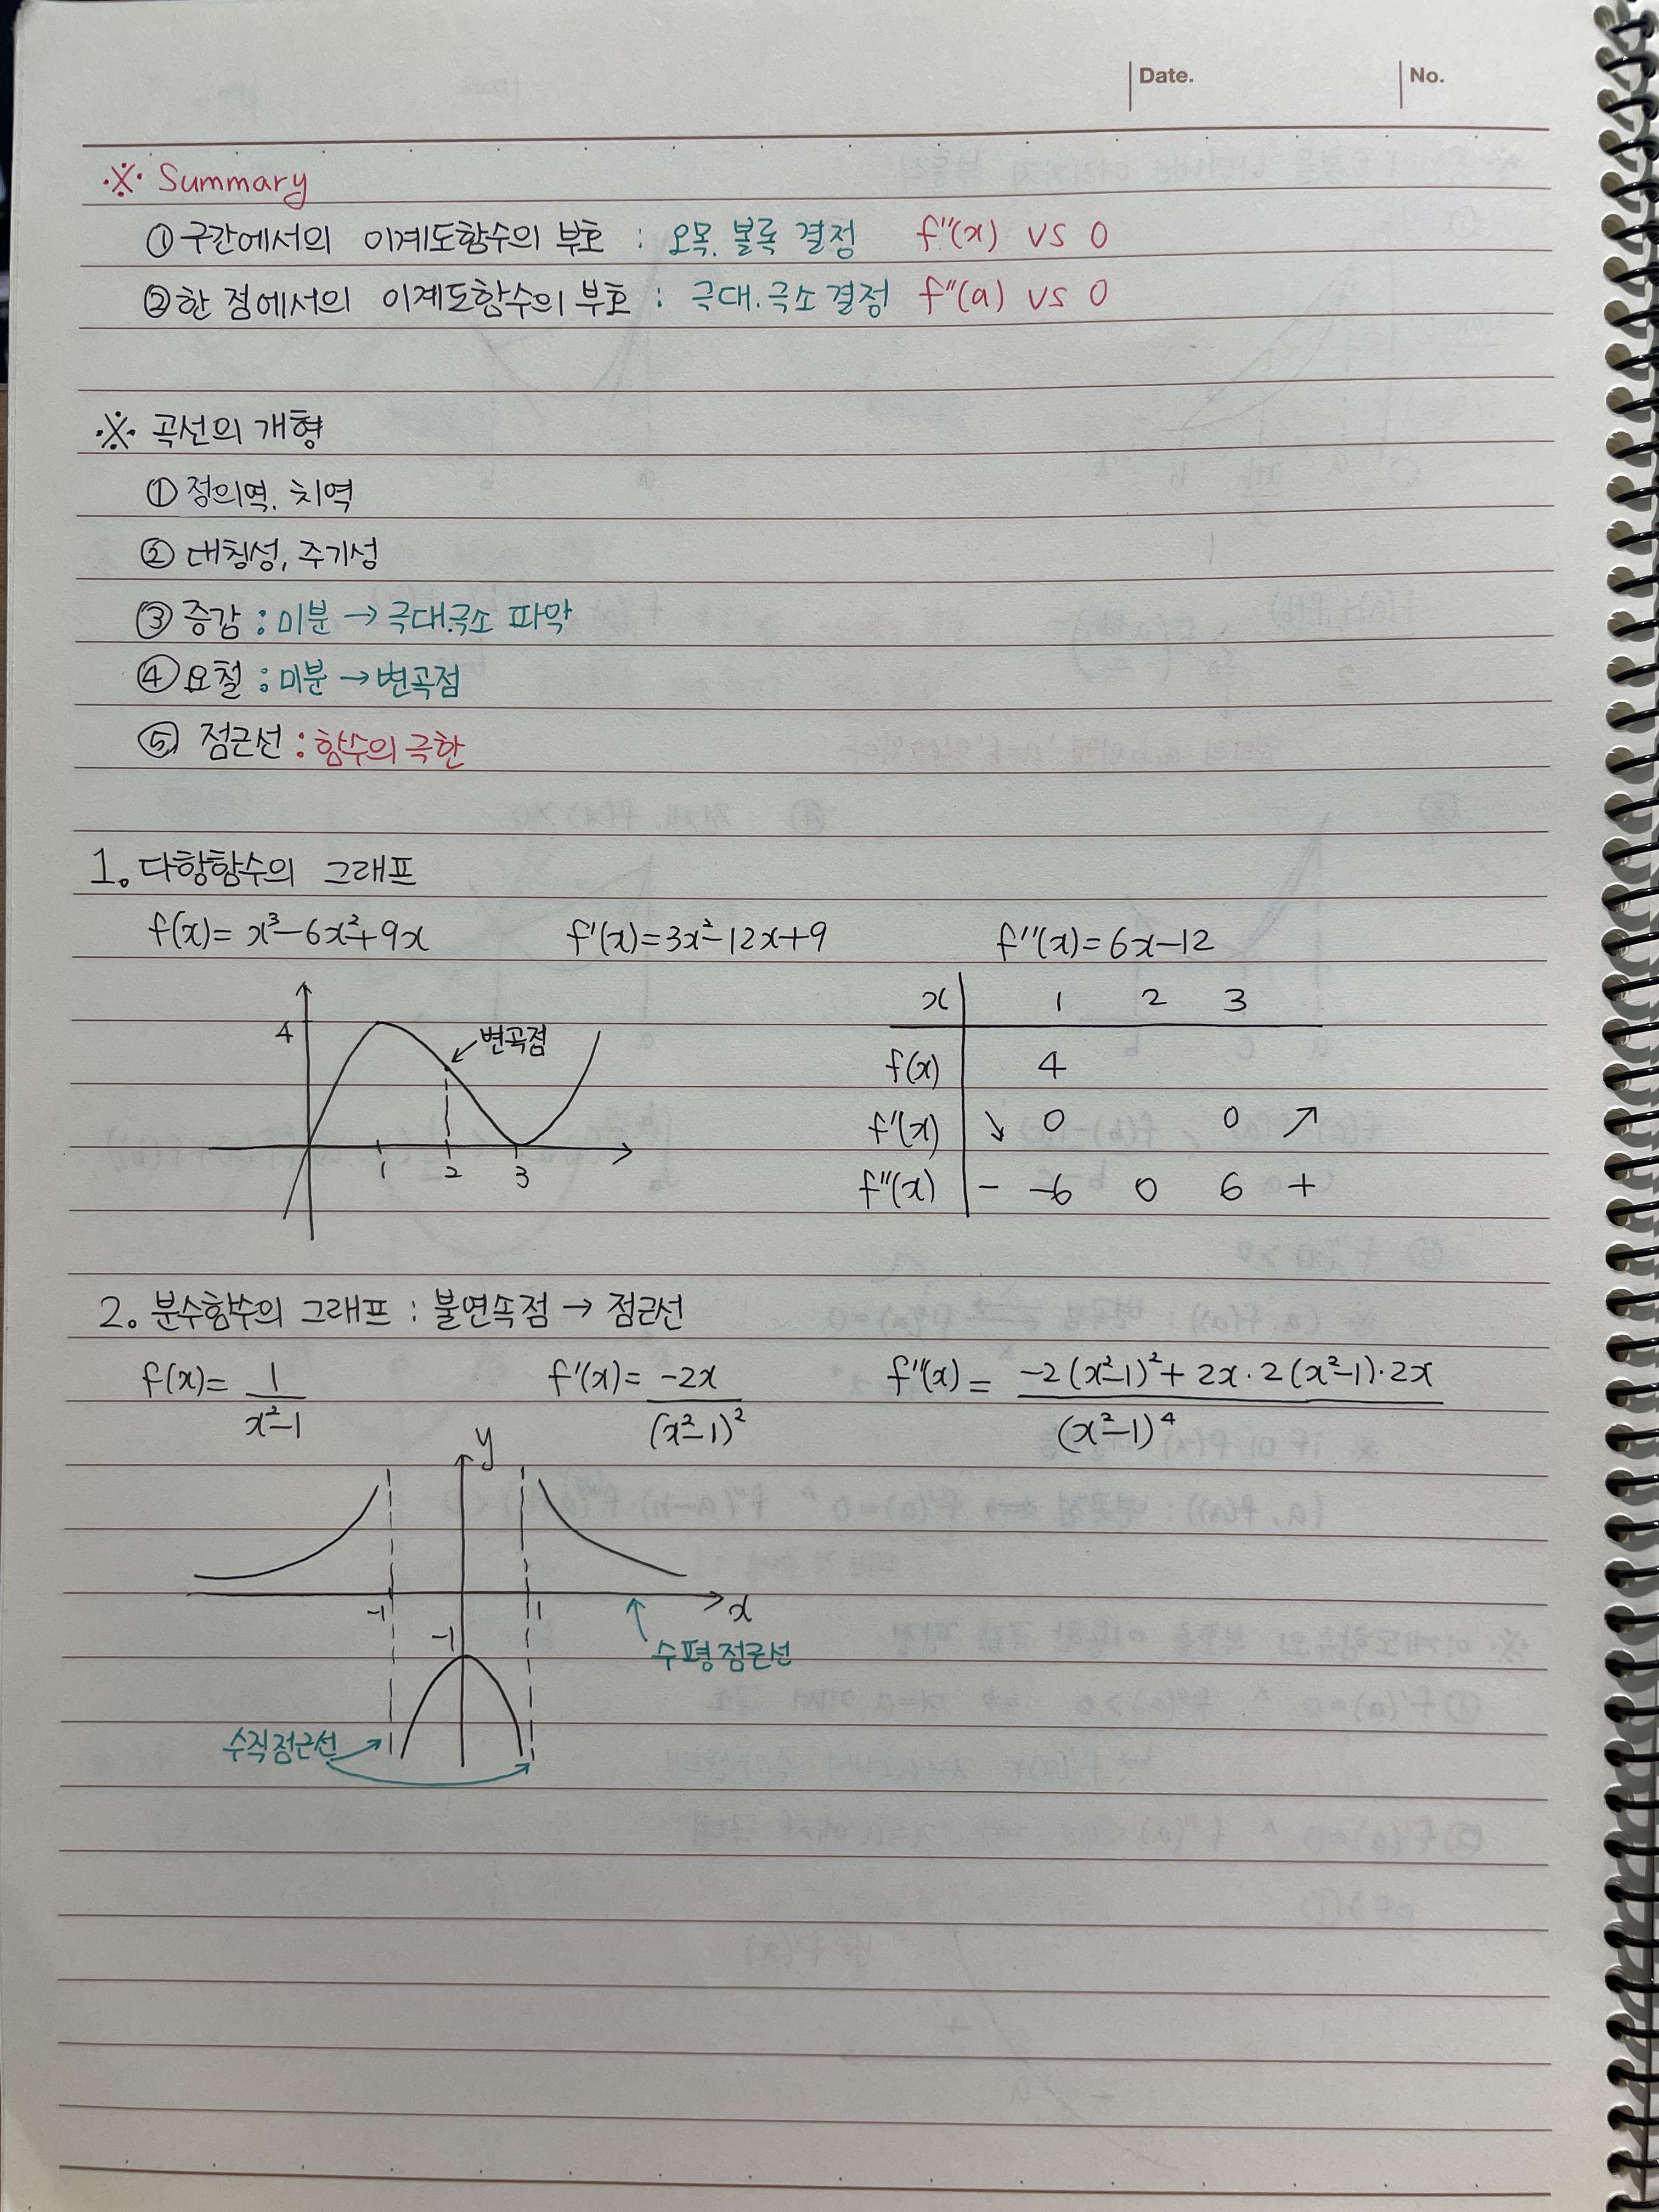 Date. No.
※ Summary
① 구간에서의 이계도함수의 부호 : 오목. 볼록 결정 f''(x) vs 0
② 한 점에서의 이계도함수의 부호 : 극대.극소 결정 f''(a) vs 0
※ 곡선의 개형
① 정의역. 치역
② 대칭성, 주기성
③ 증감 : 미분 → 극대.극소 파악
④ 요철 : 미분 → 변곡점
⑤ 점근선 : 함수의 극한
1. 다항함수의 그래프
f(x)= x³-6x²+9x f'(x)=3x²-12x+9 f''(x)=6x-12
4 변곡점
1 2 3
x 1 2 3
f(x) 4
f'(x) ↘ 0 0 ↗
f''(x) - -6 0 6 +
2. 분수함수의 그래프 : 불연속점 → 점근선
f(x)= 1/(x²-1) f'(x)= -2x/(x²-1)² f''(x) = (-2(x²-1)²+2x·2(x²-1)·2x)/(x²-1)⁴
y
-1 1 x
-1
수평점근선
수직점근선